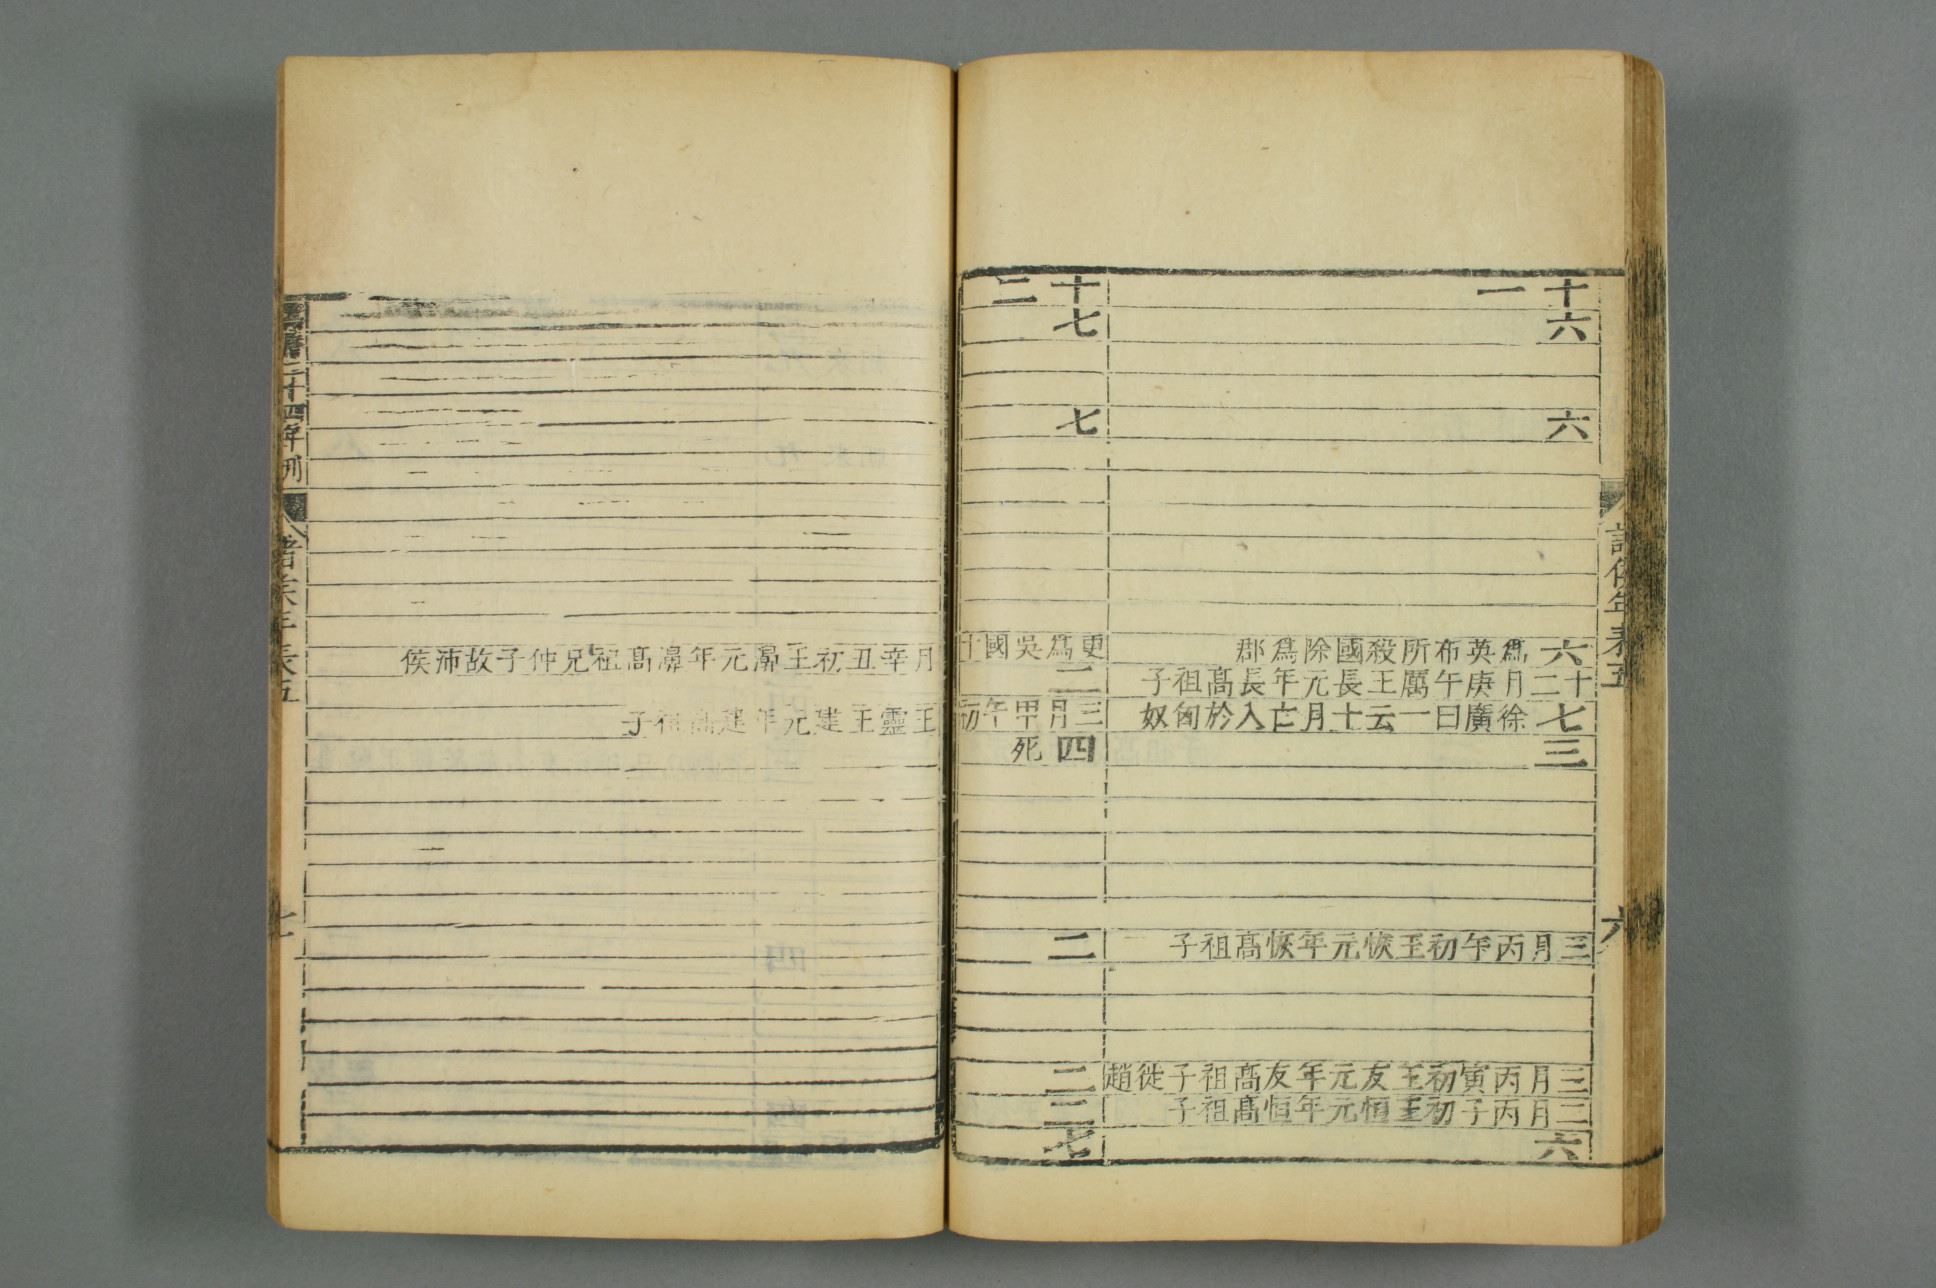 諸侯年表五
六
十一
六
六
六 爲英布所殺國除爲郡
十二月庚午厲王長元年長髙祖子
七 徐廣曰一云十月亡入於匈奴
三
三月丙午初王恢元年恢髙祖子
三月丙寅初王友元年友髙祖子徙趙
三月丙子初王恒元年恒髙祖子
六
十二
七
七
更爲吳國十月辛丑初王濞元年濞髙祖兄仲子故沛侯
二
三月甲午初王靈王建元年建髙祖子
四 死
二
二
二
七
二十四年刊
諸侯年表五
七